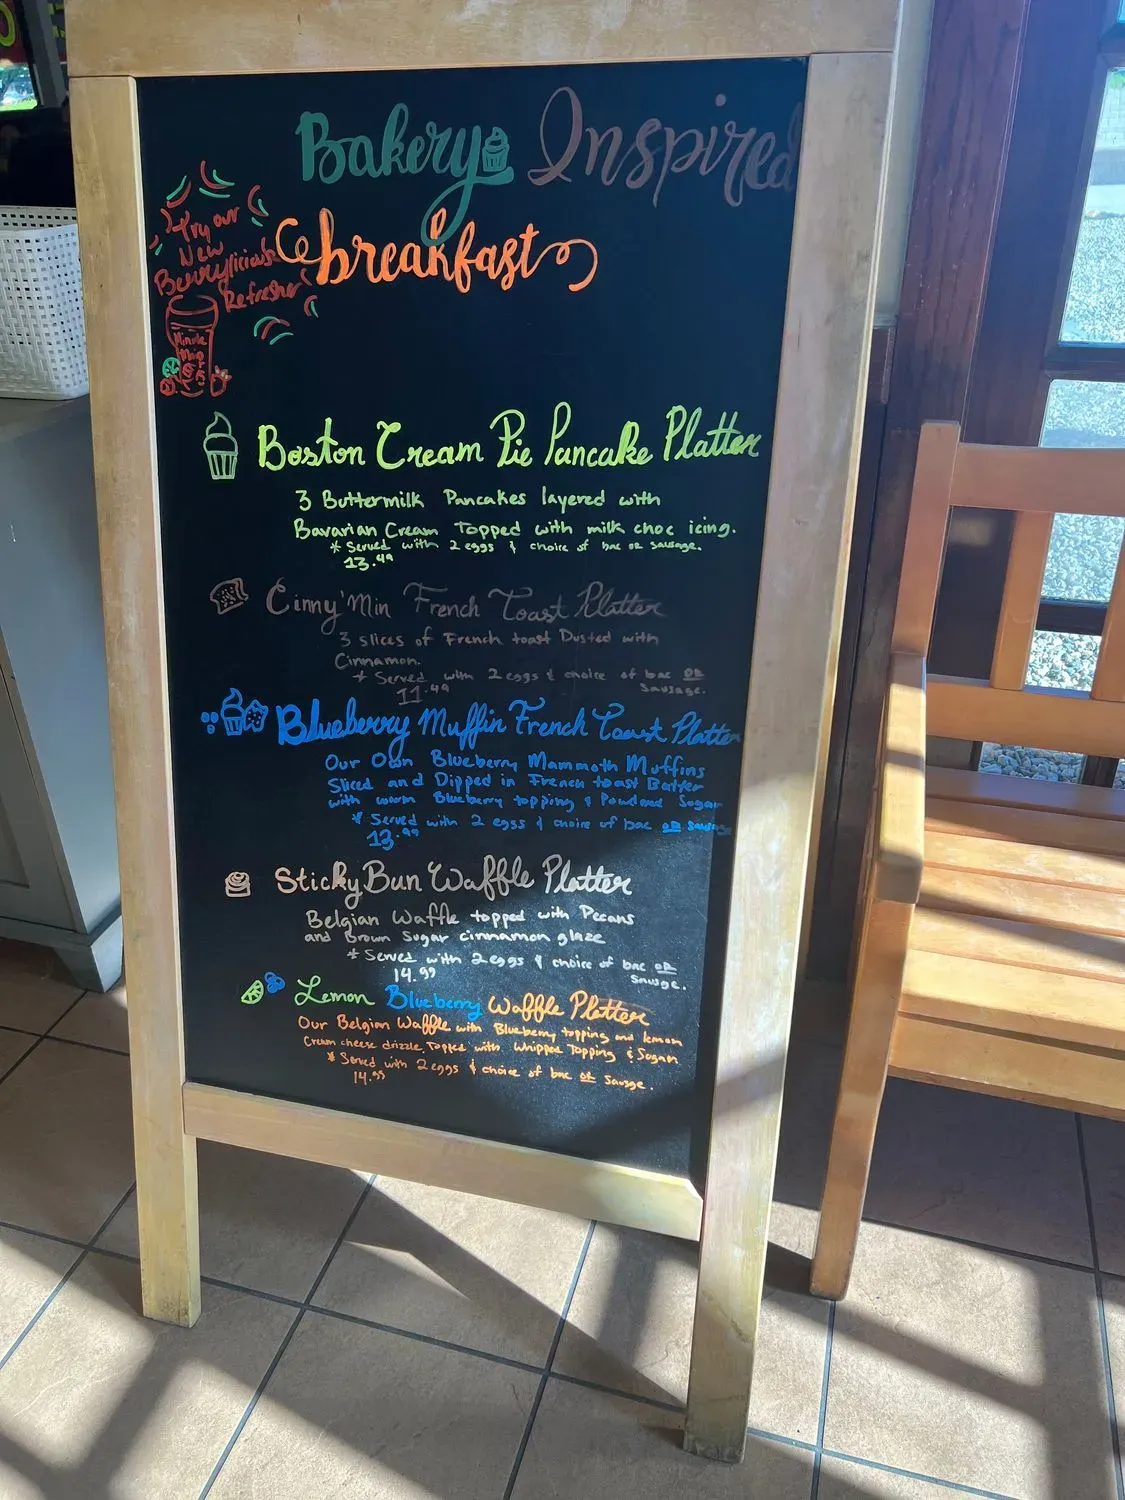 Bakery Inspired
breakfast
Try our
New
Berrylicious
Refresher
Minute
Maid
Boston Cream Pie Pancake Platter
3 Buttermilk Pancakes layered with
Bavarian Cream Topped with milk choc icing.
* Served with 2 eggs & choice of bac or sausage.
13.49
Cinny'Min French Toast Platter
3 slices of French toast Dusted with
Cinnamon.
* Served with 2 eggs & choice of bac or
sausage.
11.49
Blueberry Muffin French Toast Platter
Our Own Blueberry Mammoth Muffins
Sliced and Dipped in French toast Batter
with warm Blueberry topping & Powdered Sugar
* Served with 2 eggs & choice of bac or sausage
13.99
Sticky Bun Waffle Platter
Belgian Waffle topped with Pecans
and Brown Sugar cinnamon glaze
* Served with 2 eggs & choice of bac or
sausge.
14.99
Lemon Blueberry Waffle Platter
Our Belgian Waffle with Blueberry topping and lemon
Cream cheese drizzle. Topped with Whipped Topping & Sugar
* Served with 2 eggs & choice of bac or sausge.
14.99